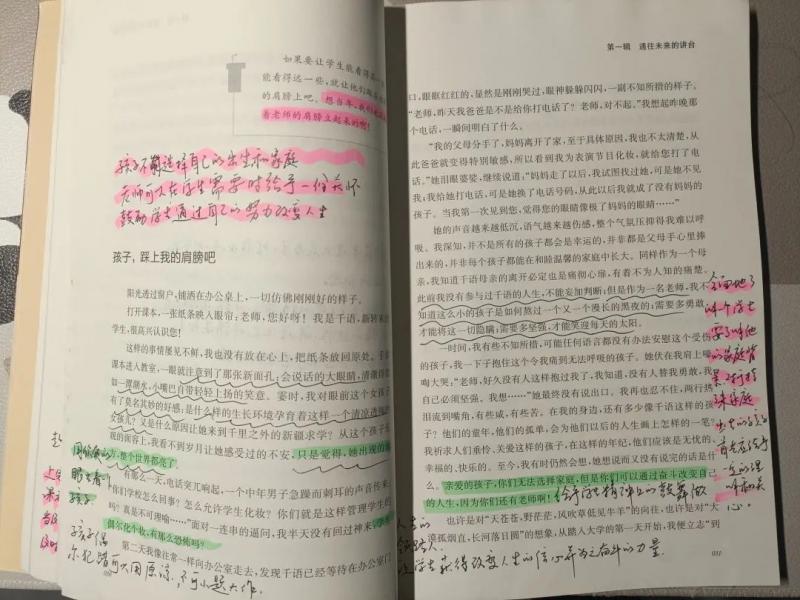 如果要让学生能看得
能看得远一些，就让他们
的肩膀上吧。想当年，我们
着老师的肩膀立起来的啊！
孩子不能选择自己的出生和家庭
老师可以在学生需要时给予一份关怀
鼓励学生通过自己的努力改变人生
孩子，踩上我的肩膀吧
阳光透过窗户，铺洒在办公桌上，一切仿佛刚刚好的样子。
打开课本，一张纸条映入眼帘：老师，您好呀！我是千语，新转来的
学生，很高兴认识您！
这样的事情屡见不鲜，我也没有放在心上，把纸条放回原处。手
课本进入教室，一眼就注意到了那张新面孔：会说话的大眼睛，清澈得
如一潭湖水，小嘴巴自带轻轻上扬的笑意。霎时，我对眼前这个女孩
有了莫名其妙的好感，是什么样的生长环境孕育着这样一个清凉透
女孩儿？又是什么原因让她来到千里之外的新疆求学？从这个孩子
现的面容上，我看不到岁月让她感受过的不安，只是觉得，她出现的
整个世界都亮了。
有那么一天，电话突兀响起，一个中年男子急躁而刺耳的声音传来：
“你们学校怎么回事？怎么允许学生化妆？你们就是这样管理学生的
？真是不可理喻……”面对一连串的逼问，我半天没有回过神来。
偶尔化个妆，有那么恐怖吗？
第二天我像往常一样向办公室走去，发现千语已经等待在办公室门
孩子偶
尔犯错可以原谅，不可小题大作。
第一辑 通往未来的讲台
口，眼眶红红的，显然是刚刚哭过，眼神躲躲闪闪，一副不知所措的样子。
“老师，昨天我爸爸是不是给你打电话了？老师，对不起。”我想起昨晚那
个电话，一瞬间明白了什么。
“我的父母分手了，妈妈离开了家，至于具体原因，我也不太清楚，从
此爸爸就变得特别敏感，所以看到我为表演节目化妆，就给您打了电
话。”她泪眼婆娑，继续说道，“妈妈走了以后，我试图找过她，可是她不见
我，我给她打电话，可是她换了电话号码，从此以后我就成了没有妈妈的
孩子。当我第一次见到您，觉得您的眼睛像极了妈妈的眼睛……”
她的声音越来越低沉，语气越来越伤感，整个气氛压抑得我难以呼
吸。我深知，并不是所有的孩子都会是幸运的，并非都是父母手心里捧
出来的，并非每个孩子都能在和睦温馨的家庭中长大。同样作为一个母
亲，我知道千语母亲的离开必定也是痛彻心扉，有着不为人知的痛楚。
此前我没有参与过千语的人生，不能妄加判断；但是作为一名老师，我不
知道这么小的孩子是如何熬过一个又一个漫长的黑夜的，需要多勇敢，
才能将这一切隐瞒；需要多坚强，才能笑迎每天的太阳。
一时间，我有些不知所措，可能任何语言都没有办法安慰这个受伤
的孩子，我一下子抱住这个令我痛到无法呼吸的孩子。她伏在我肩上嚎
啕大哭，“老师，好久没有人这样抱过我了，我知道，没有人替我勇敢，我
自己必须坚强。我想……”她最终没有说出口。我再也忍不住，两行热
泪流到嘴角，有些咸，有些苦。在我的身边，还有多少像千语这样的孩
子？他们的童年，他们的孤单，会为他们以后的人生画上怎样的一笔？
我祈求人们重视、关爱这样的孩子，在这样的年纪，他们应该是无忧的、
幸福的、快乐的。至今，我有时仍然会想，她想说而又没有说完的话是什
么。亲爱的孩子，你们无法选择家庭，但是你们可以通过奋斗改变自己
的人生，因为你们还有老师啊！
给学生精神上的鼓舞做
也许是对“天苍苍，野茫茫，风吹草低见牛羊”的向往，也许是对“大
漠孤烟直，长河落日圆”的想象，从踏入大学的第一天开始，我便立志“到
人生的
让学生获得改变人生的信心并为之奋斗的力量。